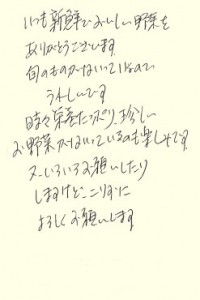 いつも新鮮でおいしい野菜を
ありがとうございます
旬のものがはいっているので
うれしいです
時々栄養たっぷり、珍しい
お野菜がはいっているのも楽しみです
又いろいろお願いしたり
しますけど、こりずに
よろしくお願いします